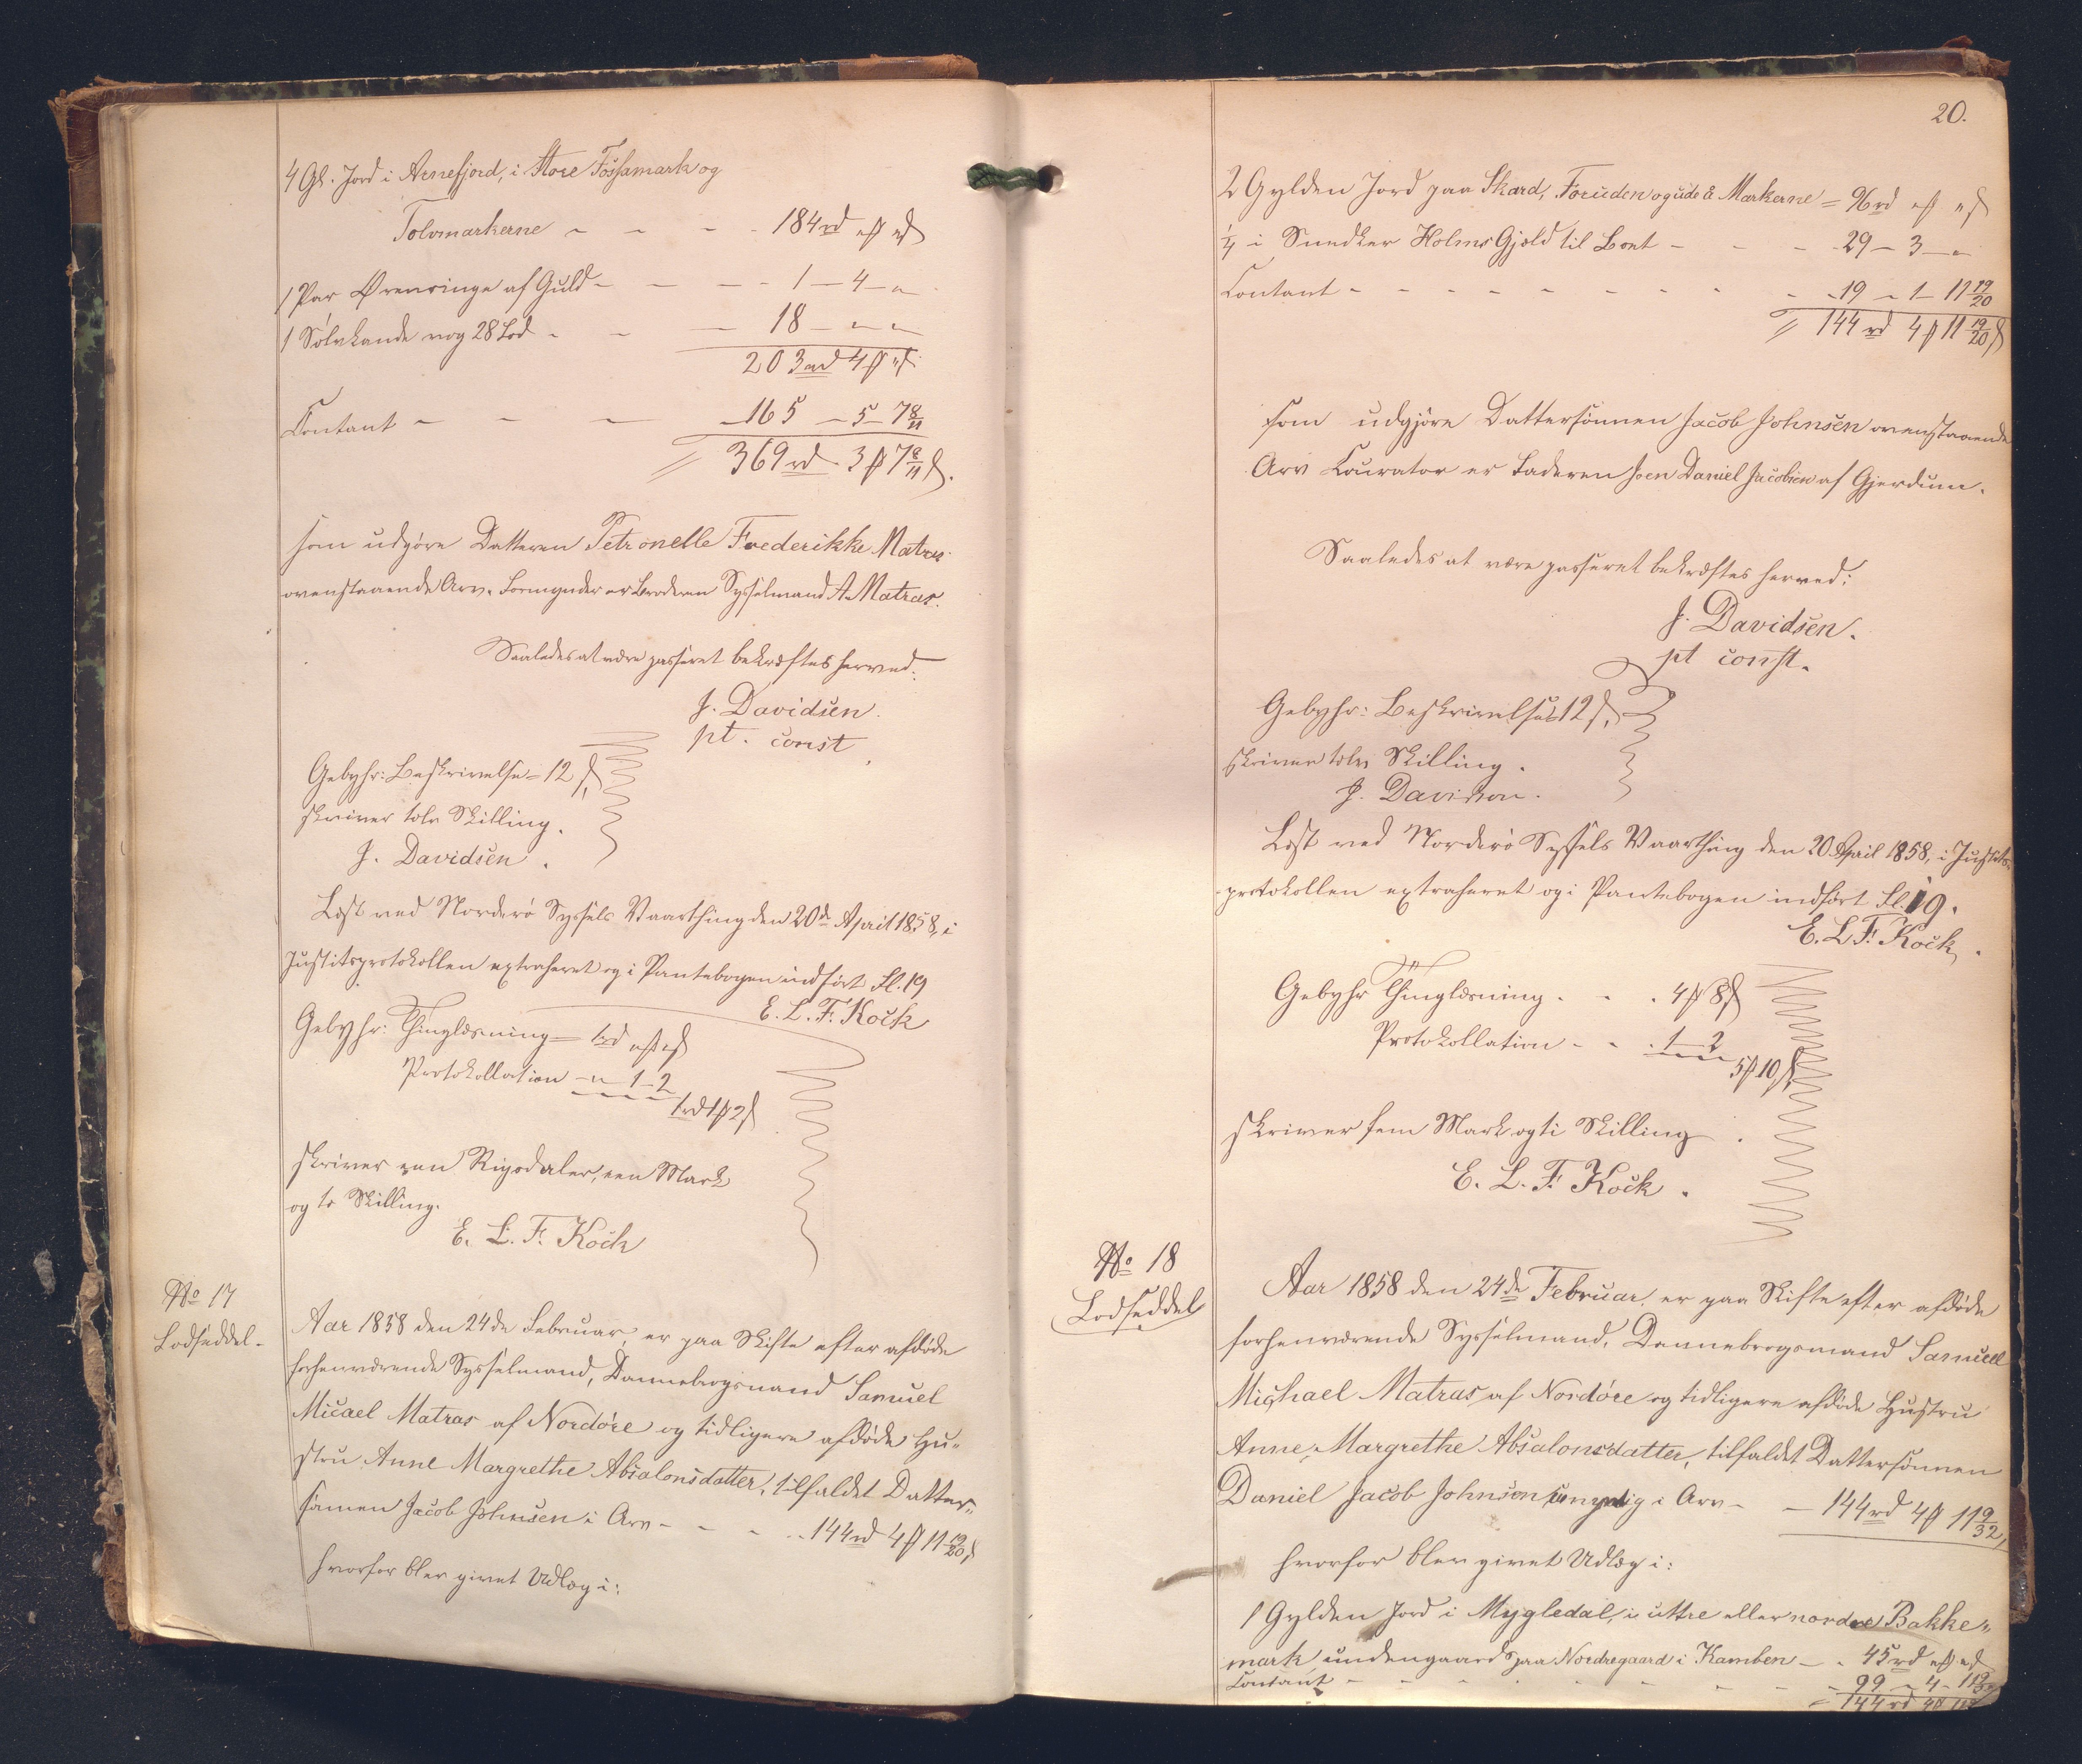 4 Gl. Jord i Arnefjord, i Store Fossamark og
Tolvmarkerne - - - - 184 rd " ß " s
1 Par Ørenringe af Guld - - - - 1 - 4 - "
1 Sølvkande vog 28 Lod - - - 18 - " - "
203 rd 4 ß " s
Contant - - - - 165 - 5 - 7 8/11
= 369 rd. 3 ß 7 8/11 s.
som udgjøre Datteren Petronelle Frederikke Matras
ovenstaaende Arv. Formynder er Broderen Sysselmand A. Matras.
Saaledes at være passeret bekræftes herved.
J. Davidsen.
pt. const
Gebyhr: Beskrivelse = 12 s,
skriver tolv Skilling.
J. Davidsen.
Læst ved Norderø Syssels Vaarthing den 20de April 1858, i
Justitsprotokollen extraheret og i Pantebogen indført Fl. 19
E. L. F. Kock
Gebyhr: Thinglæsning = 1 rd " ß " s
Protokollation - " - 1 - 2
1 rd 1 ß 2 s
skriver een Rigsdaler, een Mark
og to Skilling.
E. L. F. Kock
No 17
Lodseddel.
Aar 1858 den 24de Februar er paa Skifte efter afdøde
forhenværende Sysselmand, Dannebrogsmand Samuel
Micael Matras af Nordøre og tidligere afdøde Hu-
stru Anne Margrethe Absalonsdatter, tilfaldet Datter-
sønnen Jacob Johnsen i Arv - - - - 144 rd 4 ß 11 19/20 s
hvorfor blev givet Udlæg i:
20.
2 Gylden Jord paa Skard, Foruden og ude å Markerne = 96 rd " ß " s
1/4 i Snedker Holms Gjæld til Boet - - - 29 - 3 - "
Contant - - - - - - - - - 19 - 1 - 11 19/20
= 144 rd 4 ß 11 19/20 s
som udgjøre Dattersønnen Jacob Johnsen ovenstaaende
Arv Curator er Faderen Joen Daniel Jacobsen af Gjerdum.
Saaledes at være passeret bekræftes herved:
J. Davidsen.
pt const.
Gebyhr: Beskrivelse 12 s,
skriver tolv Skilling.
J. Davidsen.
Læst ved Norderø Syssels Vaarthing den 20 April 1858, i Justits-
protokollen extraheret og i Pantebogen indført Fl. 19.
E. L F. Kock.
Gebyhr Thinglæsning . - . 4 ß 8 s
Protokollation - - . 1 - 2
5 ß 10 s,
skriver fem Mark og ti Skilling.
E. L. F. Kock.
No 18
Lodseddel
Aar 1858 den 24de Februar er paa Skifte efter afdøde
forhenværende Sysselmand, Dannebrogsmand Samuel
Michael Matras af Nordøre og tidligere afdøde Hustru
Anne Margrethe Absalonsdatter, tilfaldet Dattersønnen
Daniel Jacob Johnsen umyndig i Arv - - 144 rd 4 ß 11 9/32,
hvorfor blev givet Udlæg i:
1 Gylden Jord i Mygledal, i uttre eller nordre Bakke-
mark undengaards paa Nordregaard i Kamben - - 45 rd " ß " s
Contant - - - - - - - - 99 - 4 - 11 9/32
= 144 rd 4 ß 11